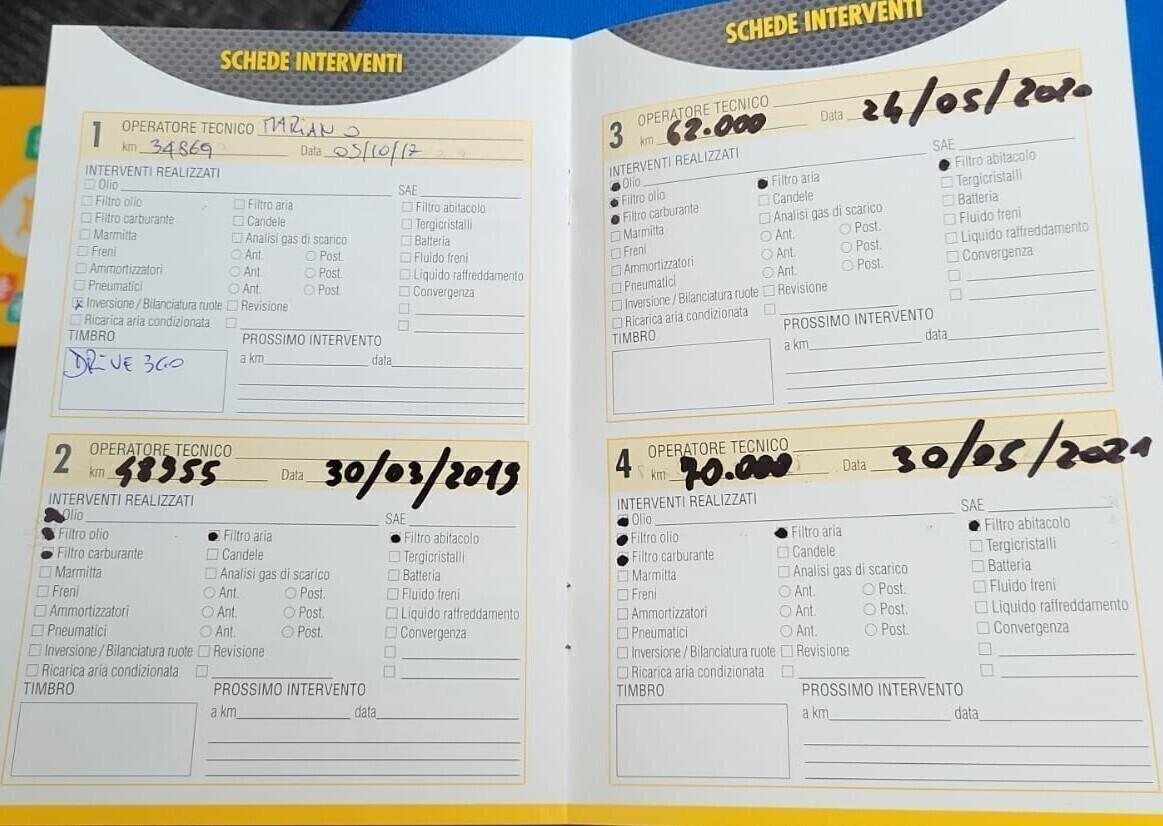 SCHEDE INTERVENTI
1 OPERATORE TECNICO MARIANO
km 34869 Data 05/10/17
INTERVENTI REALIZZATI
Olio SAE
Filtro olio Filtro aria Filtro abitacolo
Filtro carburante Candele Tergicristalli
Marmitta Analisi gas di scarico Batteria
Freni Ant. Post. Fluido freni
Ammortizzatori Ant. Post. Liquido raffreddamento
Pneumatici Ant. Post. Convergenza
Inversione / Bilanciatura ruote Revisione
Ricarica aria condizionata
TIMBRO PROSSIMO INTERVENTO
DRIVE 360 a km data
2 OPERATORE TECNICO
km 48955 Data 30/03/2019
INTERVENTI REALIZZATI
Olio SAE
Filtro olio Filtro aria Filtro abitacolo
Filtro carburante Candele Tergicristalli
Marmitta Analisi gas di scarico Batteria
Freni Ant. Post. Fluido freni
Ammortizzatori Ant. Post. Liquido raffreddamento
Pneumatici Ant. Post. Convergenza
Inversione / Bilanciatura ruote Revisione
Ricarica aria condizionata
TIMBRO PROSSIMO INTERVENTO
a km data
SCHEDE INTERVENTI
3 OPERATORE TECNICO
km 62.000 Data 24/05/2020
INTERVENTI REALIZZATI
Olio SAE
Filtro olio Filtro aria Filtro abitacolo
Filtro carburante Candele Tergicristalli
Marmitta Analisi gas di scarico Batteria
Freni Ant. Post. Fluido freni
Ammortizzatori Ant. Post. Liquido raffreddamento
Pneumatici Ant. Post. Convergenza
Inversione / Bilanciatura ruote Revisione
Ricarica aria condizionata
TIMBRO PROSSIMO INTERVENTO
a km data
4 OPERATORE TECNICO
km 70.000 Data 30/05/2021
INTERVENTI REALIZZATI
Olio SAE
Filtro olio Filtro aria Filtro abitacolo
Filtro carburante Candele Tergicristalli
Marmitta Analisi gas di scarico Batteria
Freni Ant. Post. Fluido freni
Ammortizzatori Ant. Post. Liquido raffreddamento
Pneumatici Ant. Post. Convergenza
Inversione / Bilanciatura ruote Revisione
Ricarica aria condizionata
TIMBRO PROSSIMO INTERVENTO
a km data